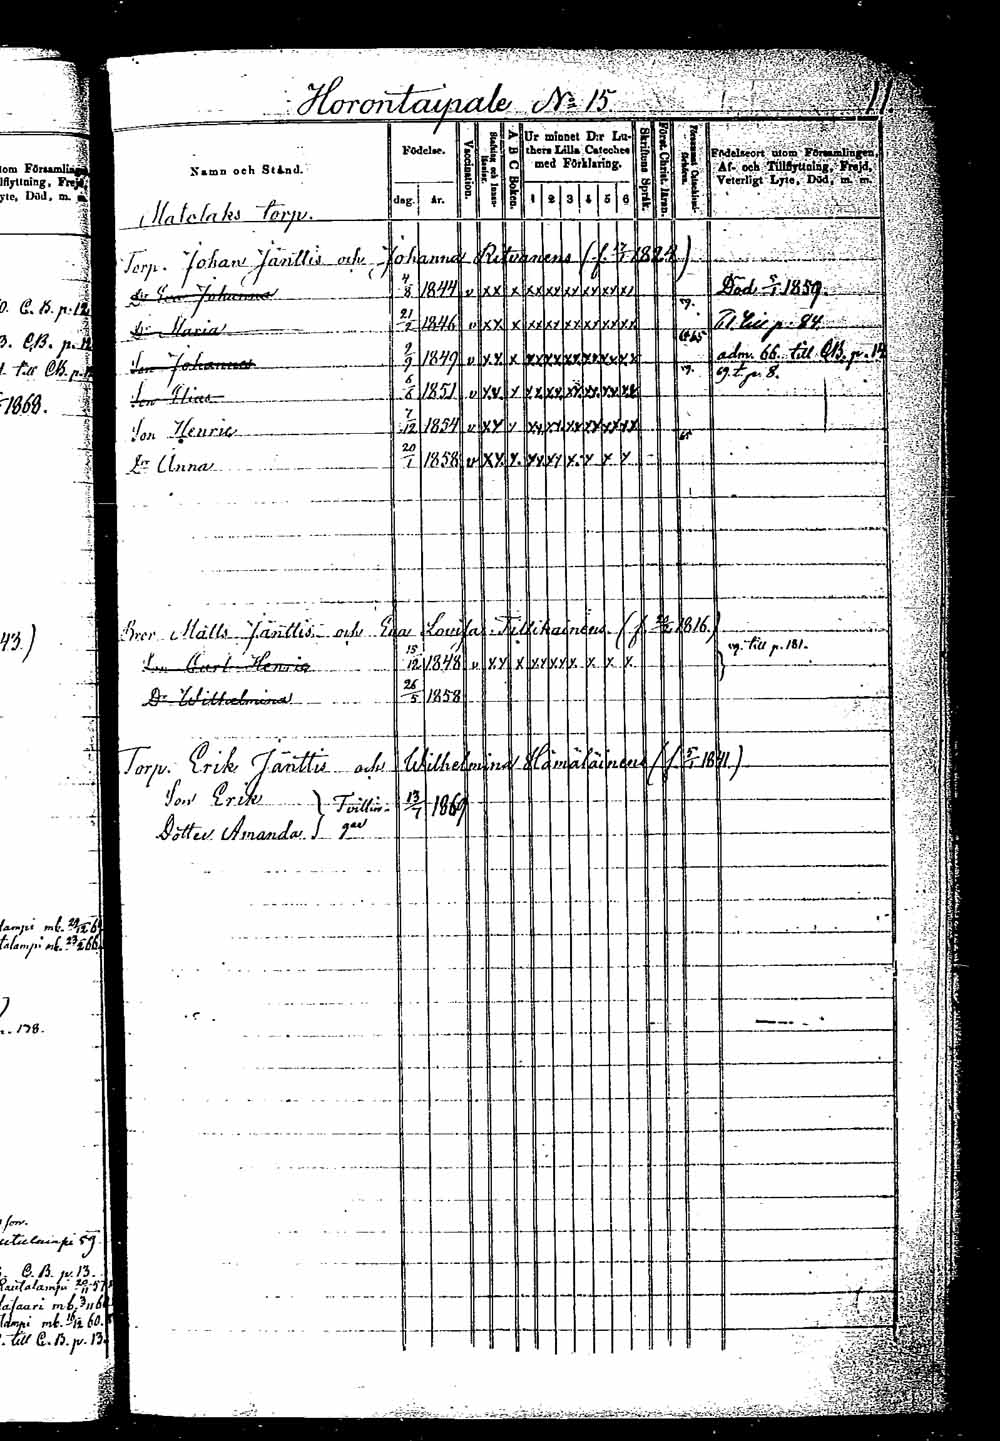 Horontaipale No 15
11
Namn och Stånd.
Födelse.
dag.
år.
Vaccination.
A B C Boken.
Ur minnet D:r Lu-
thers Lilla Cateches
med Förklaring.
1 2 3 4 5 6
Skriftens Språk.
Först. Christ. läran.
Födelseort utom Församlingen,
Af- och Tillflyttning, Frejd,
Veterligt Lyte, Död, m. m.
Matelaks torp.
Torp. Johan Jänttis och Johanna Ritvanens (f. 1824)
Dr Eva Johanna 4/8 1844 v xx x xx xx xx xx xx xx Död 5/1 1859.
Dr Maria 1846 v xx x xx xx xx xx xx xx till p. 84
Son Johannes 2/9 1849 v xx x xx xx xx xx xx xx adm. 66. till CB. p. 12
Son Elias 6/8 1851 v xx x xx xx xx xx xx xx t. p. 8.
Son Henric 7/12 1854 v xx x xx xx xx xx xx xx
Dr Anna 20/1 1858 v xx x xx xx x x x x
Brer Matts Jänttis och Eva Lovisa Tillikainens (f. 1816.)
Son Carl Henric 15/12 1848 v xx x xx xx x x x x till p. 181.
Dr Wilhelmina 26/5 1858
Torp. Erik Jänttis och Wilhelmina Hämäläinens (f. 5/1 1841.)
Son Erik } Tvillin- 13/7 1869
Dotter Amanda } gar
utom Församlingen
Tillflyttning, Frejd,
Lyte, Död, m. m.
C. B. p. 12
B. C.B. p. 12
till CB. p.
1868.
43.)
lampi mb. 24/12 6
talampi mb. 23/2 66
p. 178.
son.
59
C. B. p. 13.
Rautalampi 20/11 57
mb. 3/11 6
lampi mb. 60.
till C. B. p. 13.